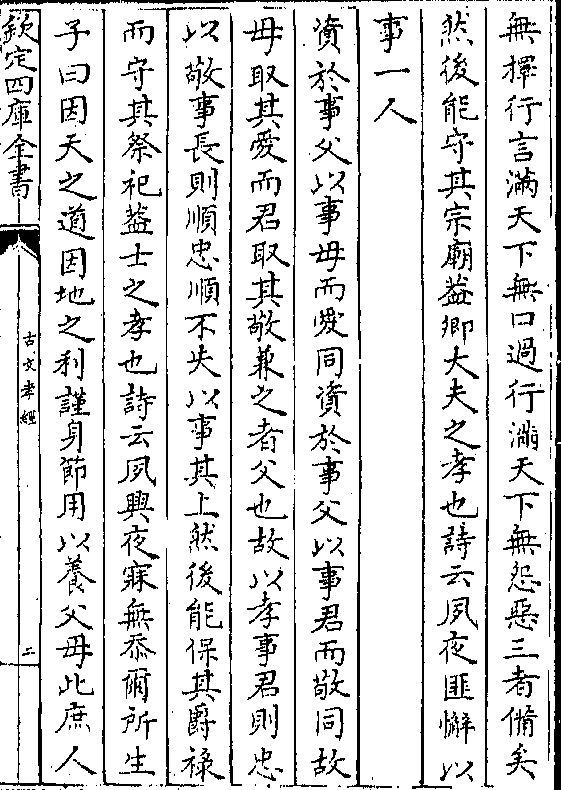 無擇行言滿天下無口過行滿天下無怨惡三者備矣
然後能守其宗廟葢卿大夫之孝也詩云夙夜匪懈以
事一人
資於事父以事母而愛同資於事父以事君而敬同故
母取其愛而君取其敬兼之者父也故以孝事君則忠
以敬事長則順忠順不失以事其上然後能保其爵祿
而守其祭祀葢士之孝也詩云夙興夜寐無忝爾所生
子曰因天之道因地之利謹身節用以養父母此庶人
欽定四庫全書
古文孝經
二